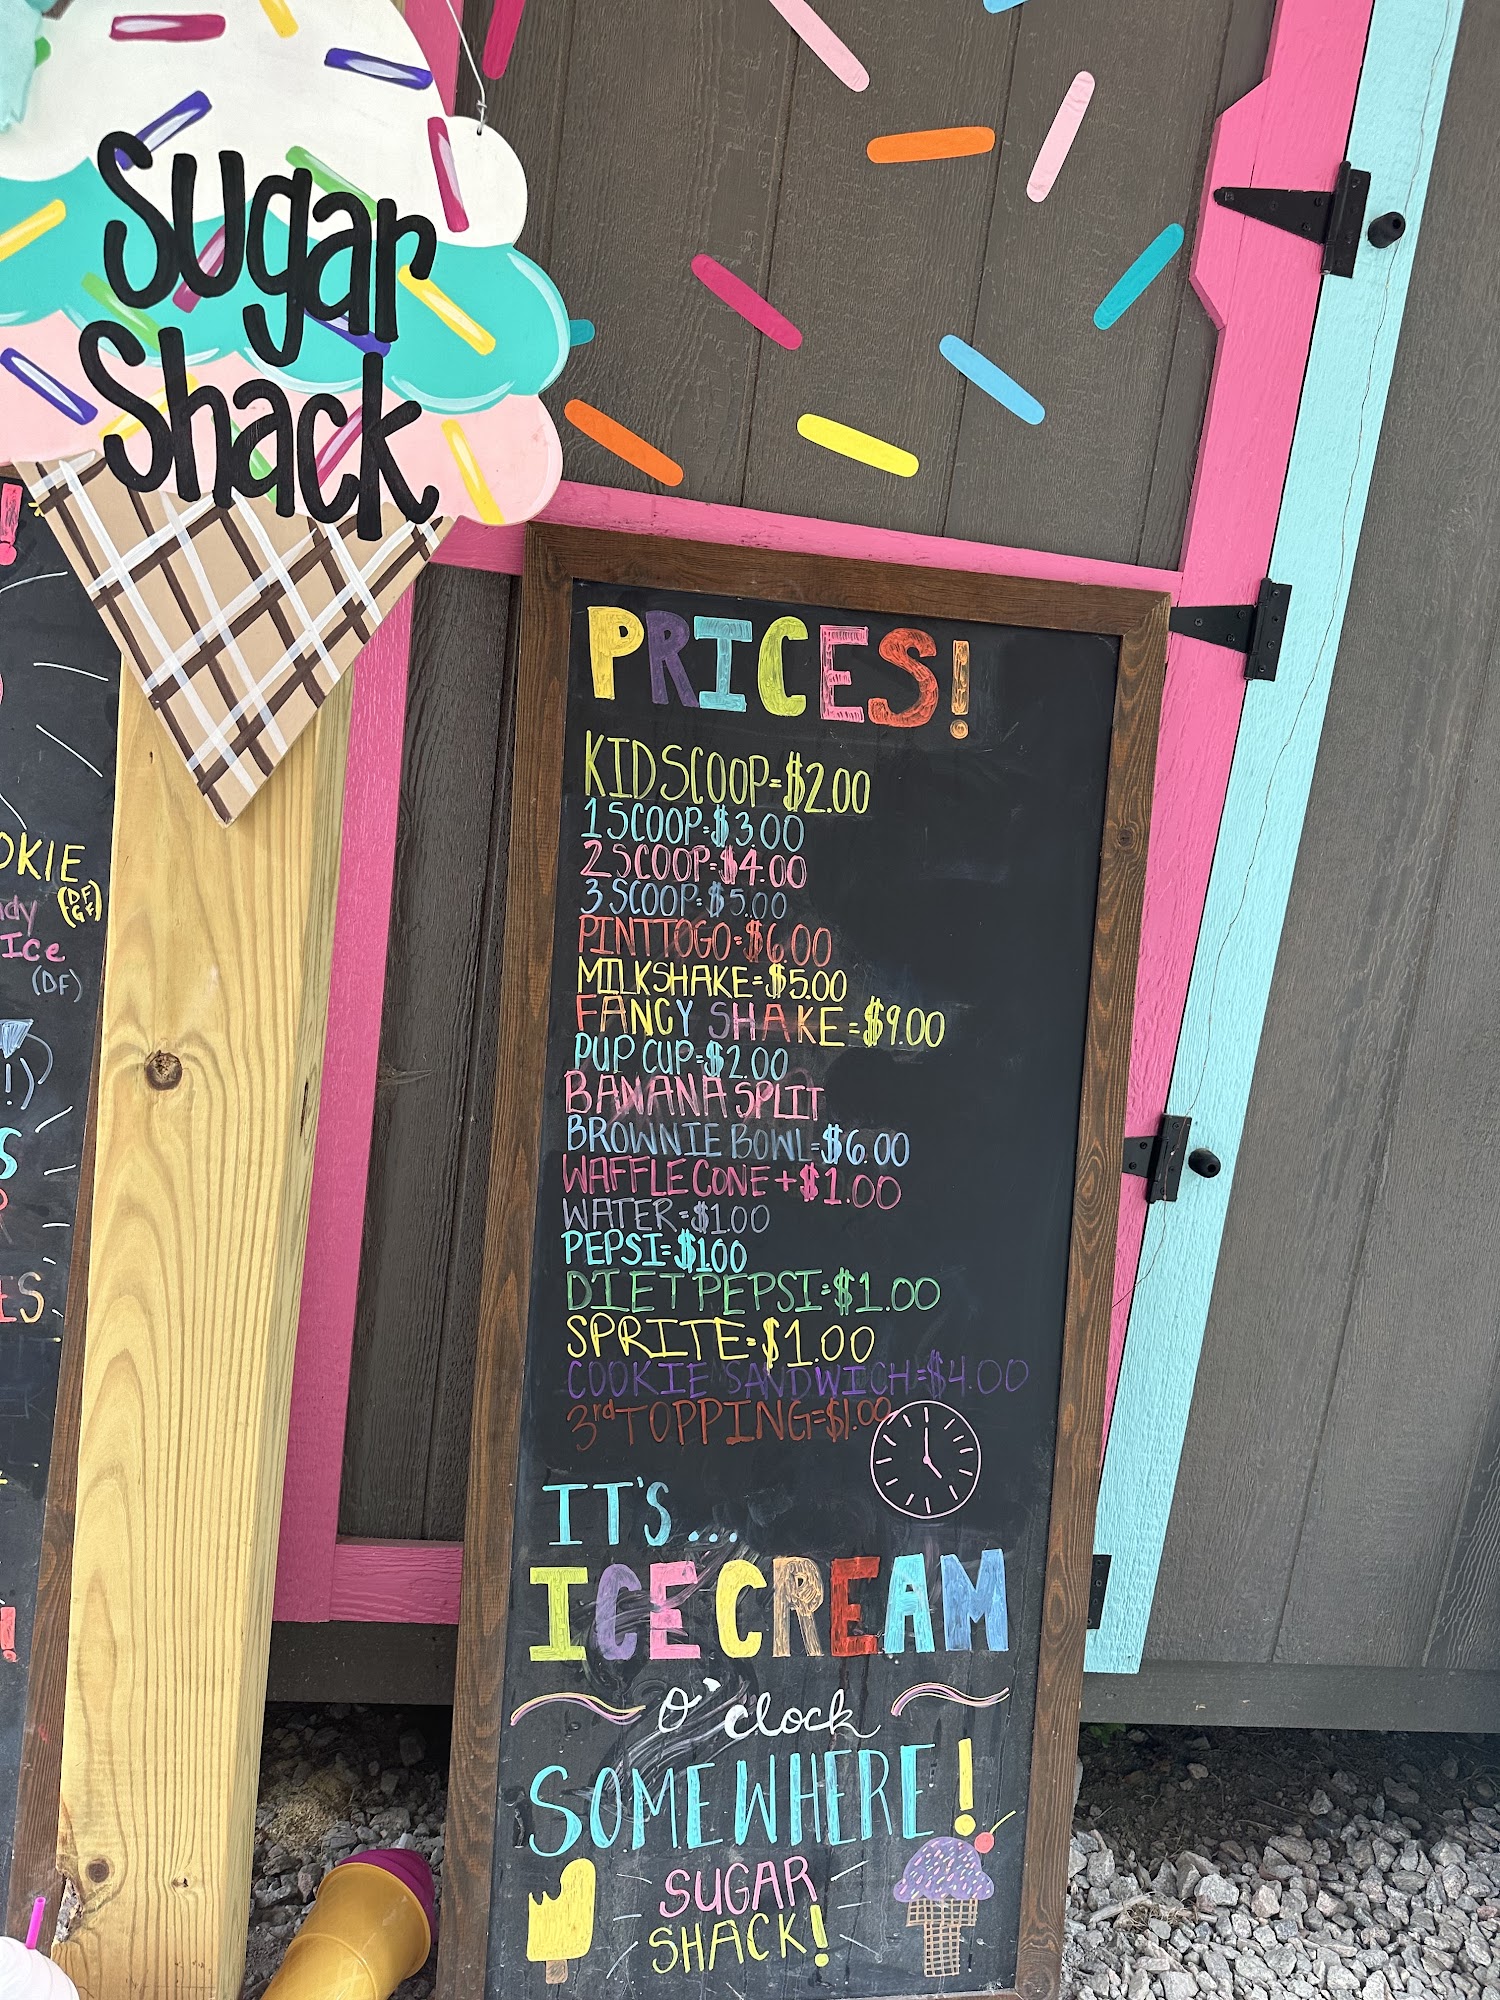 Sugar
Shack
!
OKIE
(DF
GF)
ndy
Ice
(DF)
!)
S
R
ES
!
PRICES!
KID SCOOP=$2.00
1 SCOOP=$3.00
2 SCOOP=$4.00
3 SCOOP=$5.00
PINT TO GO=$6.00
MILKSHAKE=$5.00
FANCY SHAKE=$9.00
PUP CUP=$2.00
BANANA SPLIT
BROWNIE BOWL=$6.00
WAFFLE CONE +$1.00
WATER=$1.00
PEPSI=$1.00
DIET PEPSI=$1.00
SPRITE=$1.00
COOKIE SANDWICH=$4.00
3rd TOPPING=$1.00
IT'S...
ICE CREAM
o'clock
SOMEWHERE!
SUGAR
SHACK!